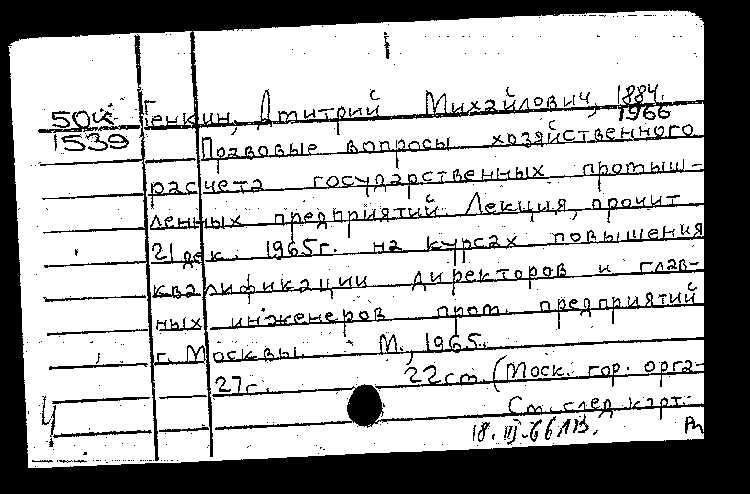 50к Генкин, Дмитрий Михайлович, 1884.
1539 1966
Правовые вопросы хозяйственного
расчета государственных промыш-
ленных предприятий. Лекция, прочит
21 дек. 1965г. на курсах повышения
квалификации директоров и глав-
ных инженеров пром. предприятий
г. Москвы. М., 1965.
27с. 22см. (Моск. гор. орга-
См. след. карт.
18.III-66